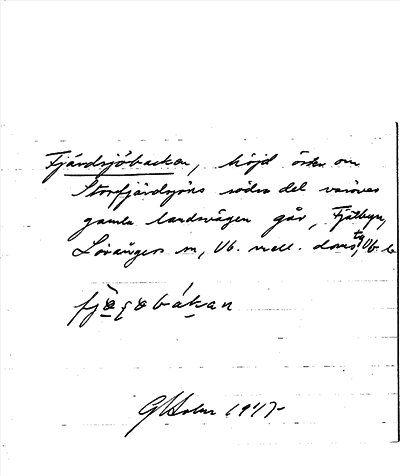 Fjärdsjöbackan, höjd öster om
Storfjärdsjöns södra del varöver
gamla landsvägen går, Fjälbyn,
Lövångers sn, Vb. mell. domsg, Vb. l.
G Holm 1947